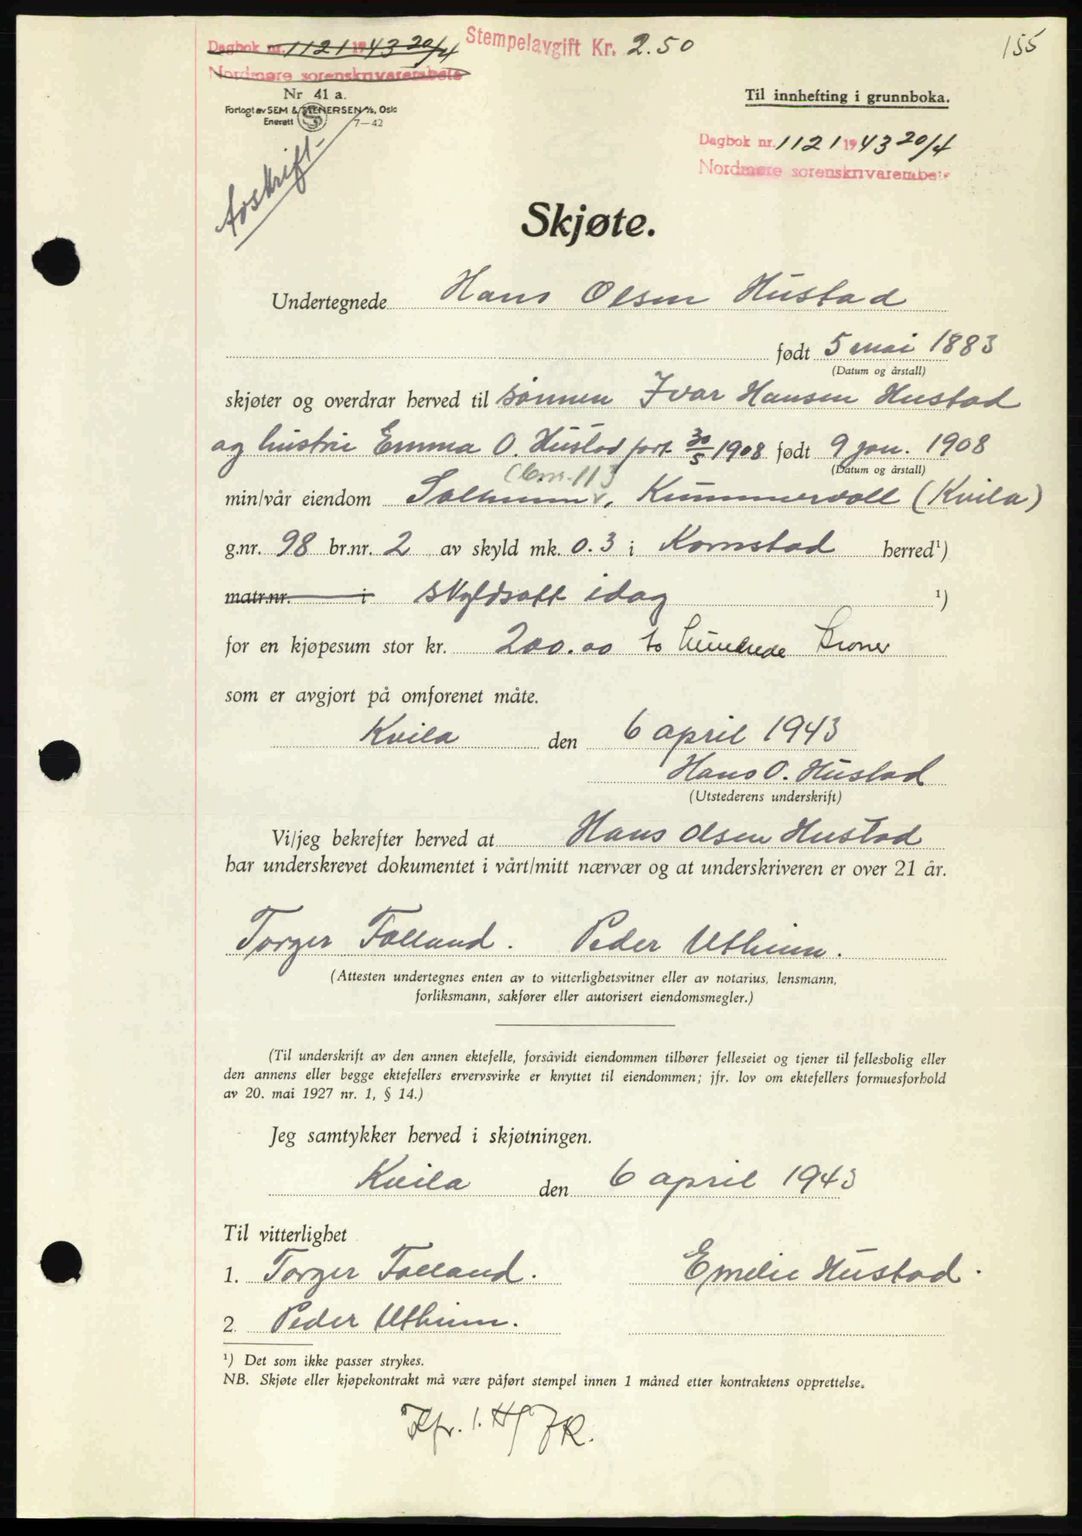 Dagbok nr. 1121 1943 20/4
Stempelavgift Kr. 2.50
155
Nordmøre sorenskrivarembete
Nr 41 a.
Forlagt av SEM & STENERSEN A/S, Oslo
Enerett 7—42
Til innhefting i grunnboka.
Dagbok nr. 1121 1943 20/4
Nordmøre sorenskrivarembete
Avskrift
Skjøte.
Undertegnede Hans Olsen Hustad
født 5 mai 1883
(Datum og årstall)
skjøter og overdrar herved til sønnen Ivar Hansen Hustad
og hustru Emma O. Hustad født 30/5 1908 født 9 jan. 1908
(Datum og årstall)
min/vår eiendom Solheim, Kummervoll (Kvila)
g.nr. 98 br.nr. 2 av skyld mk. 0.3 i Kornstad herred¹)
matr.nr. i skyldsatt idag ¹)
for en kjøpesum stor kr. 200.00 to hundrede kroner
som er avgjort på omforenet måte.
Kvila den 6 april 1943
Hans O. Hustad
(Utstederens underskrift)
Vi/jeg bekrefter herved at Hans Olsen Hustad
har underskrevet dokumentet i vårt/mitt nærvær og at underskriveren er over 21 år.
Torger Folland. Peder Utheim.
(Attesten undertegnes enten av to vitterlighetsvitner eller av notarius, lensmann,
forliksmann, sakfører eller autorisert eiendomsmegler.)
(Til underskrift av den annen ektefelle, forsåvidt eiendommen tilhører felleseiet og tjener til fellesbolig eller
den annens eller begge ektefellers ervervsvirke er knyttet til eiendommen; jfr. lov om ektefellers formuesforhold
av 20. mai 1927 nr. 1, § 14.)
Jeg samtykker herved i skjøtningen.
Kvila den 6 april 1943
Til vitterlighet
1. Torger Folland. Emelie Hustad.
2. Peder Utheim.
¹) Det som ikke passer strykes.
NB. Skjøte eller kjøpekontrakt må være påført stempel innen 1 måned etter kontraktens opprettelse.